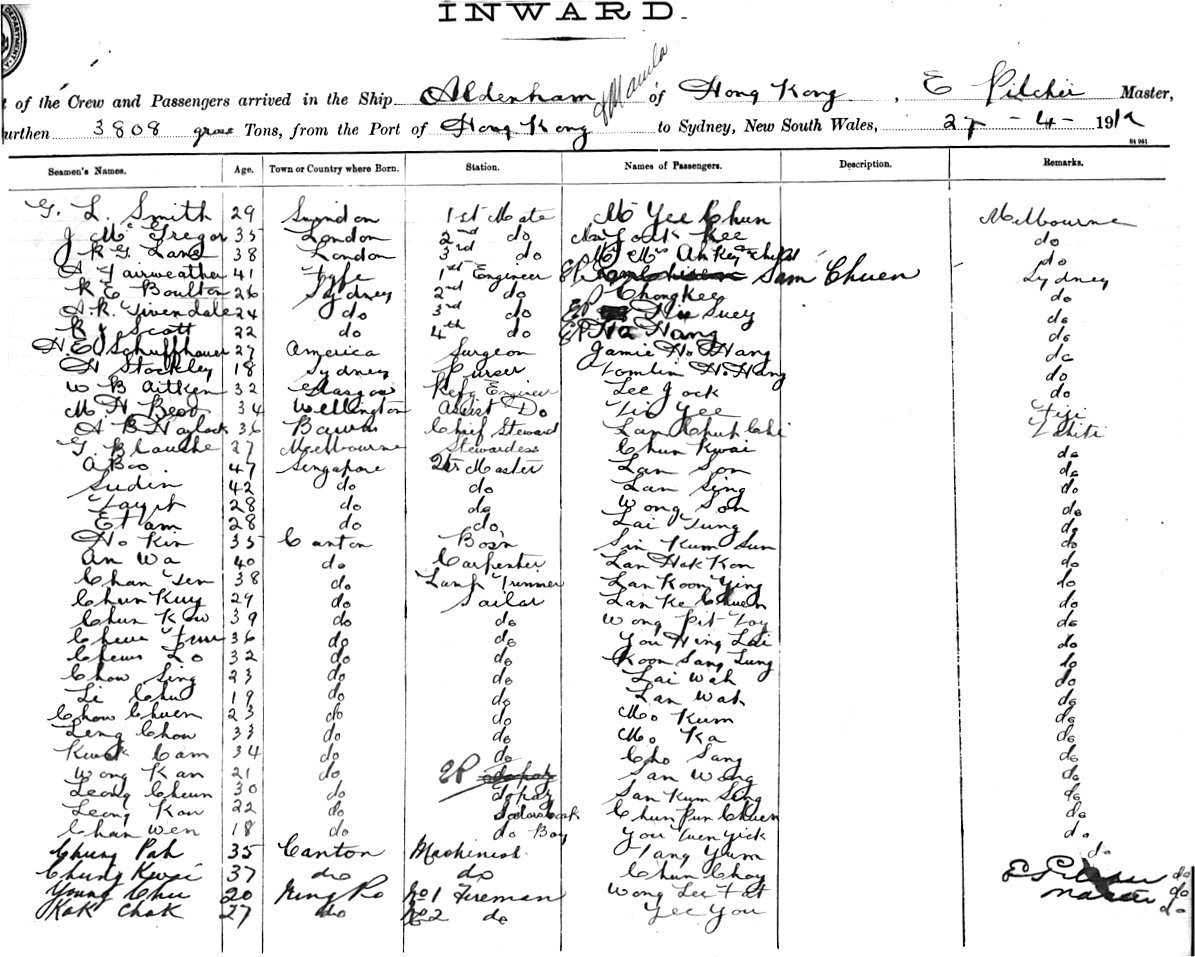 INWARD.
of the Crew and Passengers arrived in the Ship Aldenham of Hong Kong & Manila, E Pilcher Master,
urthen 3808 gross Tons, from the Port of Hong Kong to Sydney, New South Wales, 27 - 4 - 191
Seamen's Names. Age. Town or Country where Born. Station. Names of Passengers. Description. Remarks.
G. L. Smith 29 Swindon 1st Mate Mr Yee Chun Melbourne
J McGregor 35 London 2nd do Kee do
J R G Land 38 London 3rd do Mr Mrs Ah Key & child do
A Fairweather 41 Fyfe 1st Engineer Sam Chuen Sydney
R E Boulton 26 Sydney 2nd do EP Chong Kee do
A. R. Tivendale 24 do 3rd do EP Suey do
R J Scott 22 do 4th do EP Hang do
H E Schuffhauer 27 America Surgeon Jamie Ho Hang do
H Stockley 18 Sydney Purser Tomlin Ho Hang do
W B Aitken 32 Glasgow Refg Engineer Lee Jock do
M. H. 34 Wellington Assist Do Yee Fiji
A B Haylock 36 Chief Steward Lan Tahiti
G. Blanche 27 Melbourne Stewardess Chun Kwai do
A Boo 47 Singapore Master Lan Son do
Sudin 42 do do Lan Sing do
Tayib 28 do do Wong Son do
Etam 28 do do Lai Tung do
Ho Kin 35 Canton Bos'n Sin Kum Sun do
An Wa 40 do Carpenter Lan Hok Kon do
Chan Sen 38 do Lamp Trimmer Lan Koon Ying do
Chun Kuy 29 do Sailor Lan Ke Chuen do
Chun Kow 39 do do Wong Pit Tay do
36 do do You Hing Lai do
Cheung Lo 32 do do Koon Sang Tung do
Chow Sing 23 do do Lai Wah do
Li Chu 19 do do Lan Wah do
Chow Chuen 23 do do Mo Kum do
Leng Chow 33 do do Mo Ka do
Kwok Cam 34 do do Cho Sang do
Wong Kan 21 do EP San Wong do
Leong Cheun 30 do San Kum Sing do
Leong Kow 22 do Chun Pun Chuen do
Chan Wen 18 do do Boy You Yuen Yick do
Chung Pah 35 Canton Machinist Tang Yum do
Chung Kwai 37 do do Chun Choy E Pilcher do
Young Chu 20 Ning Po No 1 Fireman Wong Lee Fat Master do
Kok Chak 27 do No 2 do Yee You do